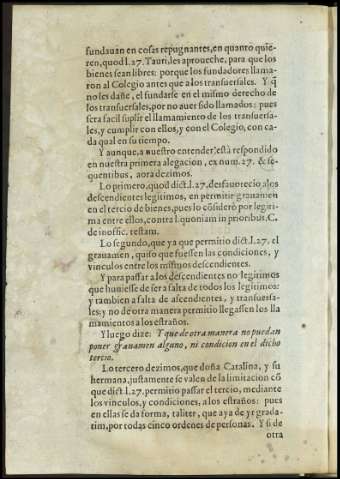 fundauan en cosas repugnantes, en quanto quie-
ren, quod l.27. Tauri, les aproueche, para que los
bienes sean libres: porque los fundadores llama-
ron al Colegio antes que a los transuersales. Y q̃
no les dañe, el fundarse en el mismo derecho de
los transuersales, por no auer sido llamados: pues
sera facil suplir el llamamiento de los transuersa-
les, y cumplir con ellos, y con el Colegio, con ca-
da qual en su tiempo.
Y aunque, a nuestro entender, està respondido
en nuestra primera alegacion, ex num. 27. & se-
quentibus, aora dezimos.
Lo primero, quod dict. l.27. desfauorecio a los
descendientes legitimos, en permitir grauamen
en el tercio de bienes, pues lo cõsiderò por legiti-
ma entre ellos, contra l. quoniam in prioribus. C.
de inoffic. testam.
Lo segundo, que ya que permitio dict. l.27. el
grauamen, quiso que fuessen las condiciones, y
vinculos entre los mismos descendientes.
Y para passar a los descendientes no legitimos
que huuiesse de ser a falta de todos los legitimos:
y tambien a falta de ascendientes, y transuersa-
les: y no de otra manera permitio llegassen los lla
mamientos a los estraños.
Y luego dize: Y que de otra manera no puedan
poner grauamen alguno, ni condicion en el dicho
tercio.
Lo tercero dezimos, que doña Catalina, y su
hermana, justamente se valen de la limitacion cõ
que dict. l.27. permitio passar el tercio, mediante
los vinculos, y condiciones, a los estraños: pues
en ellas se da forma, taliter, que aya de yr grada-
tim, por todas cinco ordenes de personas. Y si de
otra